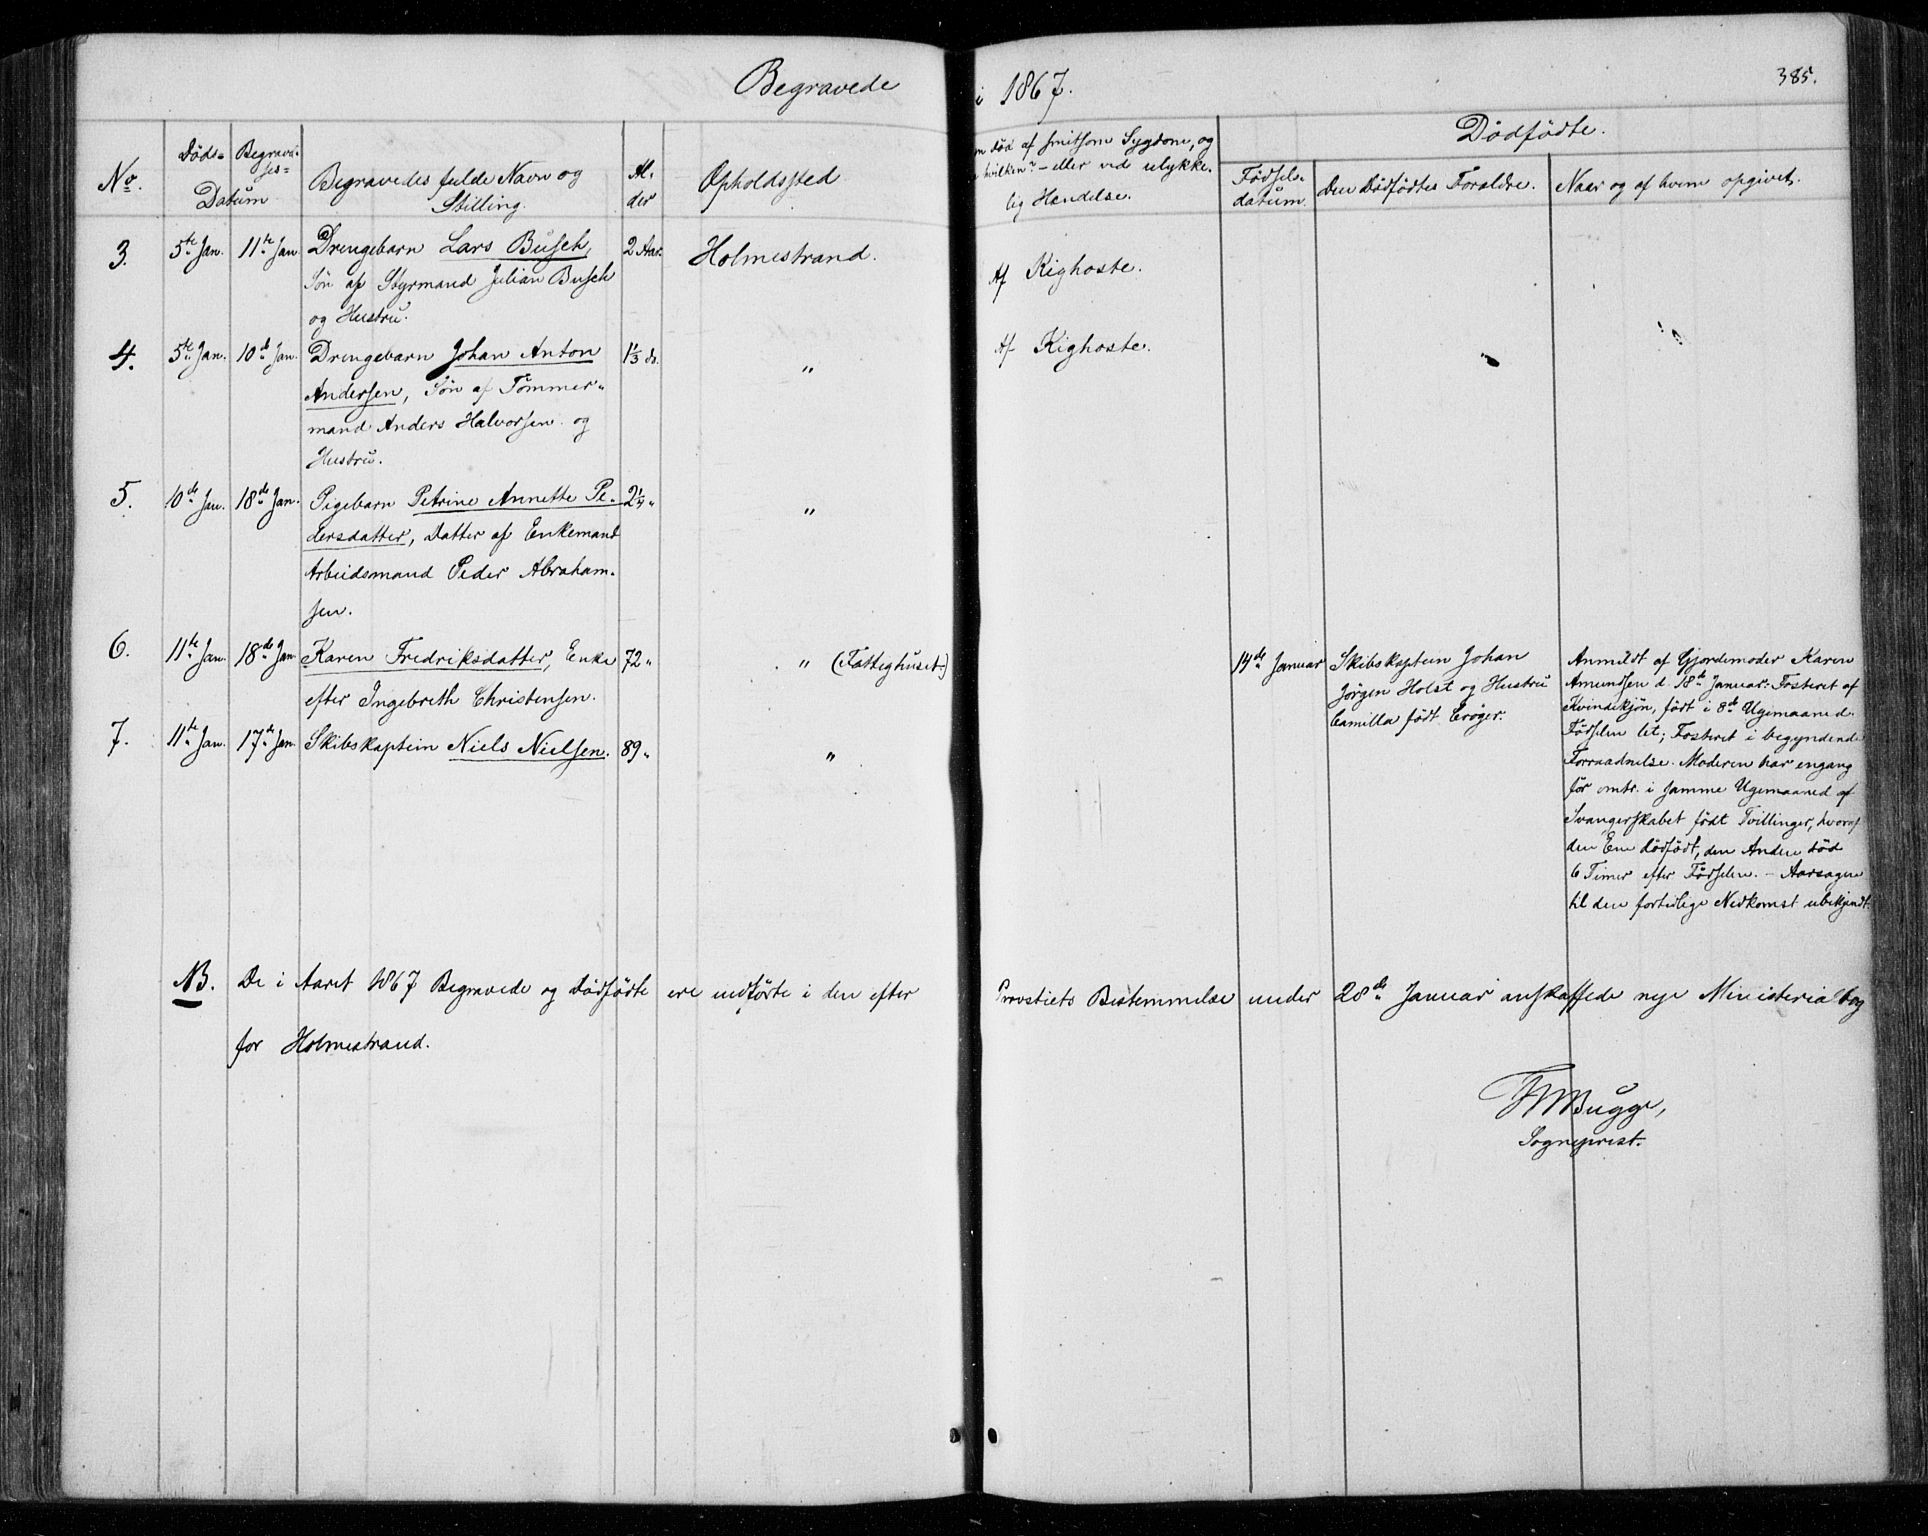 Begravede i 1867.
385.
No.
Døds-
Begravel-
ses-
Datum
Begravedes fulde Navn og
Stilling.
Al-
der
Opholdssted
om død af smitsom Sygdom, og
hvilken? - eller ved ulykke-
lig Hændelse.
Dødfødte.
Fødsels-
datum.
Den Dødfødtes Forældre.
Naar og af hvem opgivet.
3. 5te Jan. 11te Jan. Drengebarn Lars Busch, 2 Aar. Holmestrand. Af Kighoste.
Søn af Styrmand Julian Busch
og Hustru.
4. 5te Jan. 10de Jan. Drengebarn Johan Anton 1⅓ do. " Af Kighoste.
Andersen, Søn af Tømmer-
mand Anders Halvorsen og
Hustru.
5. 10de Jan. 18de Jan. Pigebarn Petrine Annette Pe- 2¼ " "
dersdatter, Datter af Enkemand
Arbeidsmand Peder Abraham-
sen.
6. 11te Jan. 18de Jan. Karen Fredriksdatter, Enke 72 " " (Fattighuset.)
efter Ingebreth Christensen.
7. 11te Jan. 17de Jan. Skibskaptein Niels Nielsen. 89 " "
14de Januar Skibskaptein Johan
Jørgen Holst og Hustru
Camilla født Crøger.
Anmeldt af Gjordemoder Karen
Amundsen d. 18de Januar: Fosteret af
Kvindekjøn, født i 8de Ugemaaned.
Fødselen let; Fosteret i begyndende
Forraadnelse. Moderen har engang
før omtr. i samme Ugemaaned af
Svangerskabet født Tvillinger, hvoraf
den Ene dødfødt, den Anden død
6 Timer efter Fødselen. - Aarsagen
til den fortidlige Nedkomst ubekjendt.
NB. De i Aaret 1867 Begravede og Dødfødte ere indførte i den efter Provstiets Bestemmelse under 28de Januar anskaffede nye Ministerialbog
for Holmestrand.
Bugge,
Sogneprest.